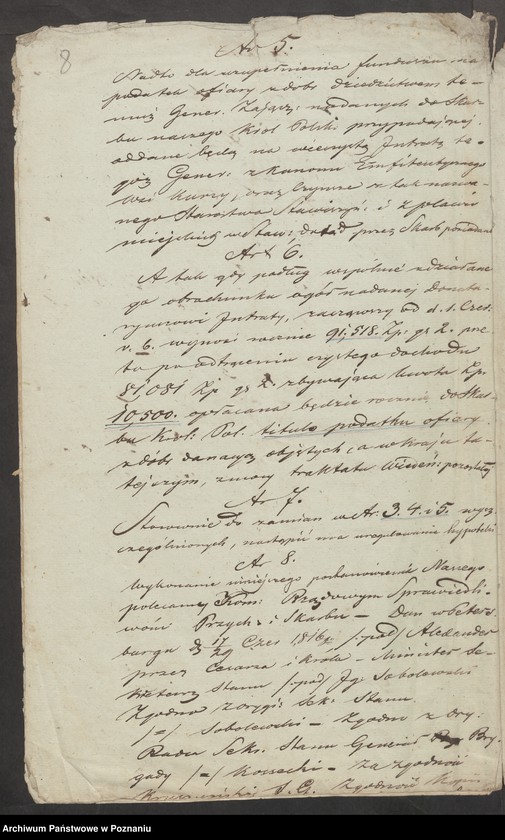 8
Ar 5.
Nadto dla uzupełnienia funduszu na
podatek ofiary z dóbr dziedzictwem te-
muż Gener. Zającz: nadanych do Skar-
bu naszego Król Polski przypadającej
oddane będą na wieczystą Intratę te-
goż Gener: z kanonu Emfiteutycznego
wsi kurzy, oraz Czynsze z tak nazwa-
nego Starostwa Stawiszyń: i z placów
miejskich w Staw: dotąd przez Skarb posiadane
Art 6.
A tak gdy podług wspólnie zdziałane
go obrachunku ogół nadanej Donata-
ryuszowi Intraty, zacząwszy od d. 1. Czer.
r. b. wynosi rocznie 91,518. Zp. gr 2. prze
to po odtrąceniu czystego dochodu
81,081 Zp. gr 2. zbywająca kwota Zp.
10,500. opłacana będzie rocznie do Skar-
bu Król. Pol. titulo podatku ofiary
z dóbr danych objętych, a w kraju tu-
tejszym, z mocy traktatu Wiedeń: pozostałych
Ar 7.
Stosownie do zamian w Ar. 3. 4. i 5. wysz
czególnionych, nastąpić ma uregulowanie hypoteki
Ar 8.
Wykonanie niniejszego postanowienia Naszego
polecamy Kom: Rządowym Sprawiedli-
wości Przych: i Skarbu – Dan w Peters
burgu d 17/29 Czer 1816 r. /:pod:/ Alexander
przez Cesarza i Króla – Minister Se-
kretarz Stanu /:pod:/ Ig. Sobolewski
Zgodno z oryg: Sek: Stanu
/=/ Sobolewski – Zgodno z Ory:
Radca Sekr. Stanu Generał Bry-
gady /=/ Kossecki – Za zgodność
S. G. Zgodność Kopii
Archiwum Państwowe w Poznaniu